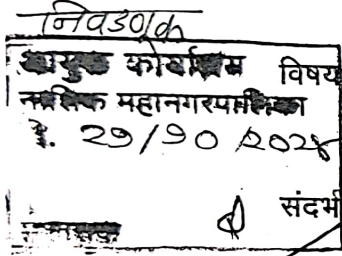 निवडणूक
आयुक्त कार्यालय विषय
नाशिक महानगरपालिका
२१/१०/२०२४
संदर्भ